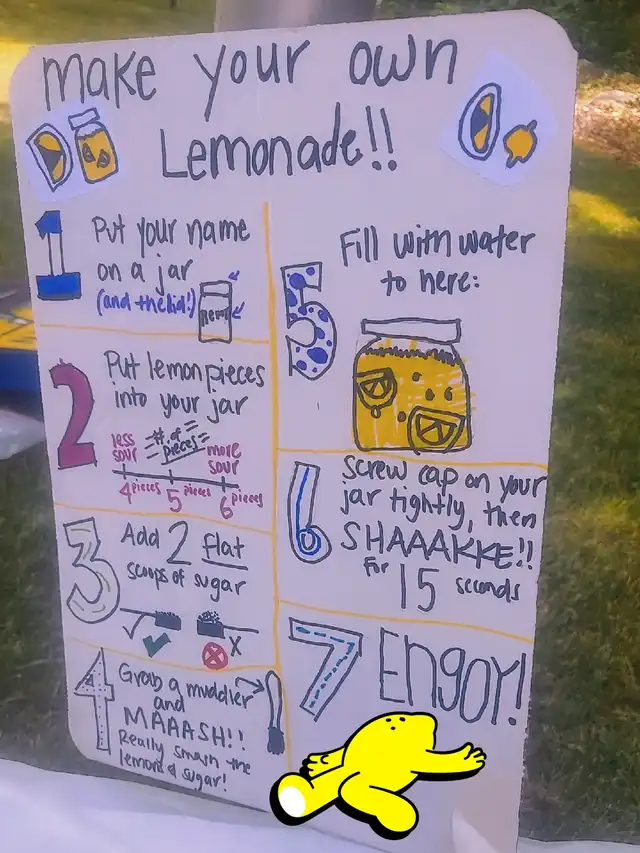 make your own
Lemonade!!
1
Put your name
on a jar
(and the lid!)
2
Put lemon pieces
into your jar
less
sour
# of
pieces
more
sour
4 pieces
5 pieces
6 pieces
3
Add 2 flat
scoops of sugar
4
Grab a muddler
and
MAAASH!!
Really smash the
lemon & sugar!
5
Fill with water
to here:
6
Screw cap on your
jar tightly, then
SHAAAKKE!!
For 15 seconds
7
ENJOY!